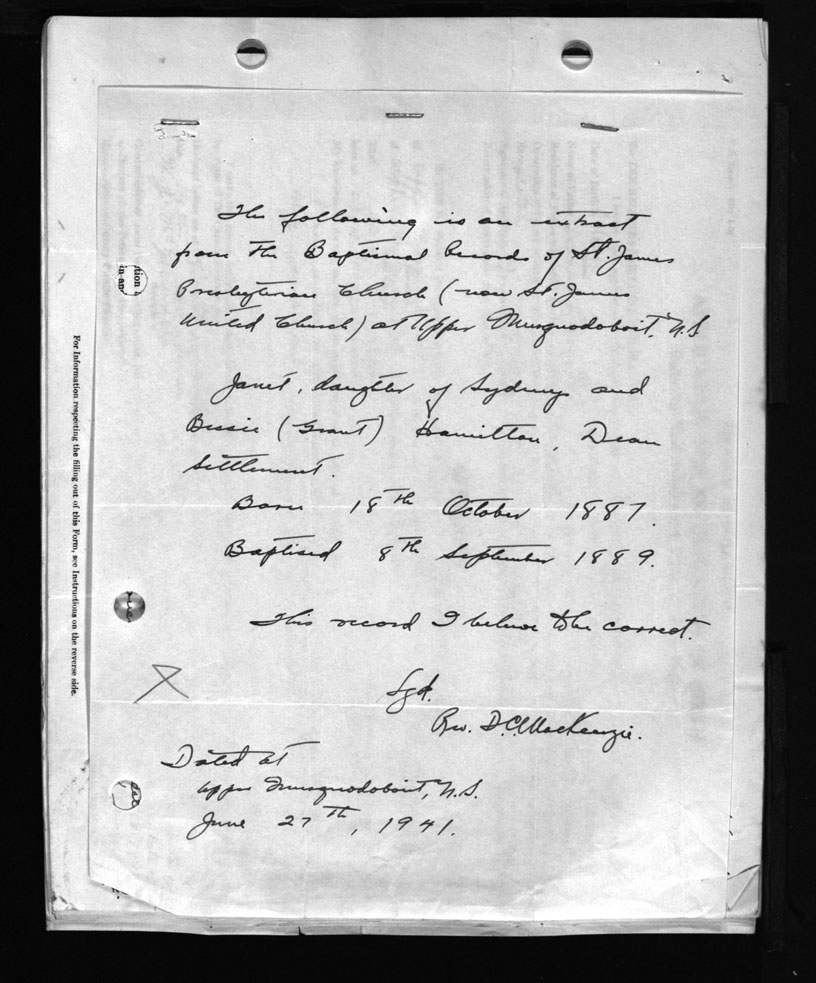 The following is an extract
from The Baptismal Records of St. James
Presbyterian Church (now St. James
United Church) at Upper Musquodoboit, N.S
Janet, daughter of Sydney and
Bessie (Grant) Hamilton, Dean
Settlement.
Born 18th October 1887.
Baptised 8th September 1889.
This record I believe to be correct.
Sgd.
Rev. D.C. MacKenzie.
Dated at
Upper Musquodoboit, N.S.
June 27th, 1941.
For Information respecting the filling out of this Form, see Instructions on the reverse side.